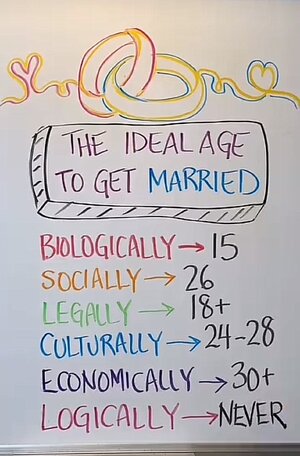 THE IDEAL AGE
TO GET MARRIED
BIOLOGICALLY→15
SOCIALLY→26
LEGALLY→18+
CULTURALLY→24-28
ECONOMICALLY→30+
LOGICALLY→NEVER